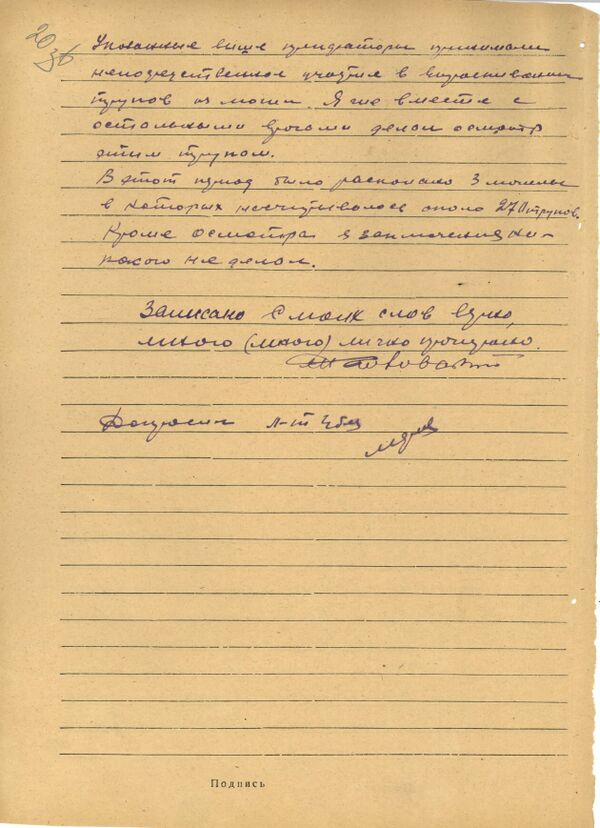 20 об
Указанные выше прозекторы принимали
непосредственное участие в вытаскивании
трупов из могил. Я же вместе с
остальными врачами делал осмотр
этим трупам.
В этот период было раскопано 3 могилы
в которых насчитывалось около 270 трупов.
Кроме осмотра я заключения ни-
какого не делал.
Записано с моих слов верно,
мною (мною) лично прочитано.
Допросил л-т г/б
Подпись